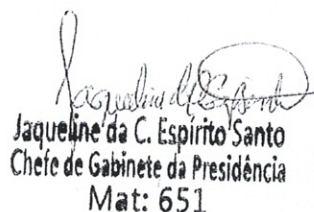 Jaqueline da C. Espírito Santo
Chefe de Gabinete da Presidência
Mat: 651